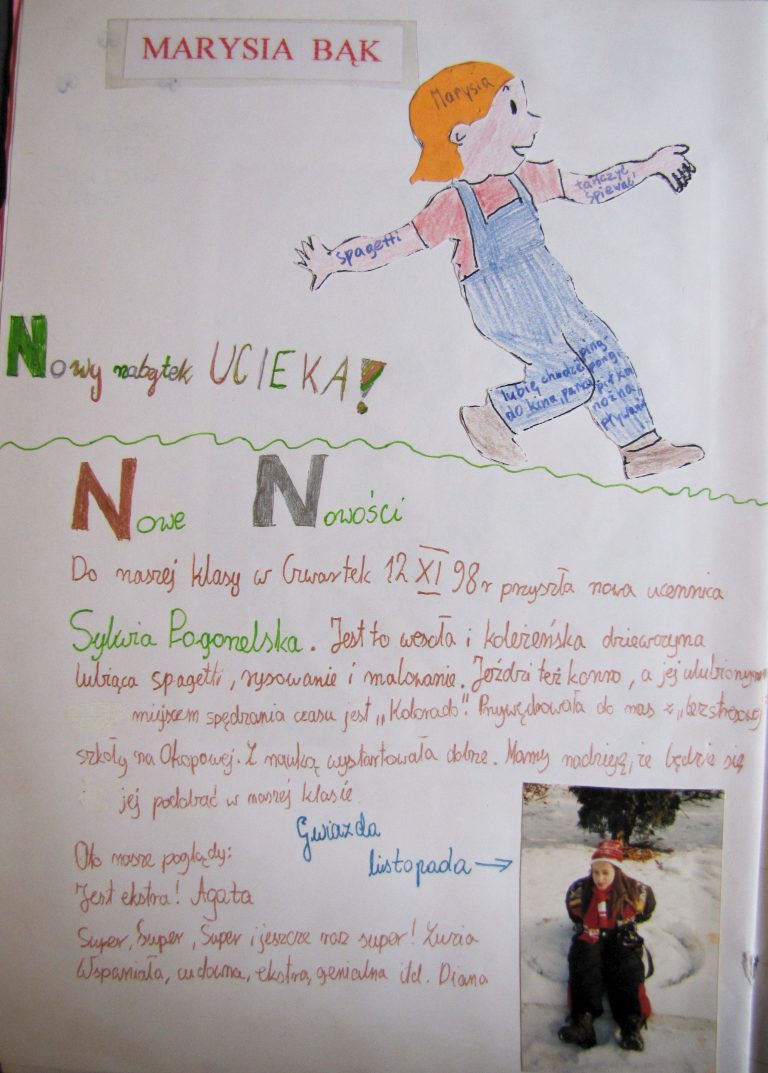 MARYSIA BĄK
Marysia
tańczyć
śpiewać
spagetti
lubię chodzić
do kina, parku
ping-
pong,
piłka
nożna,
pływanie
Nowy nabytek UCIEKA!
Nowe Nowości
Do naszej klasy w Czwartek 12 XI 98 r przyszła nowa uczennica
Sylwia Pogonelska. Jest to wesoła i koleżeńska dziewczyna
lubiąca spagetti, rysowanie i malowanie. Jeździ też konno, a jej ulubionym
miejscem spędzania czasu jest „Kolorado". Przywędrowała do nas z „bezstresowej"
szkoły na Okopowej. Z nauką wystartowała dobrze. Mamy nadzieję, że będzie się
jej podobać w naszej klasie.
Gwiazda
listopada →
Oto nasze poglądy:
Jest ekstra! Agata
Super, Super, Super i jeszcze raz super! Zuzia
Wspaniała, cudowna, ekstra, genialna itd. Diana